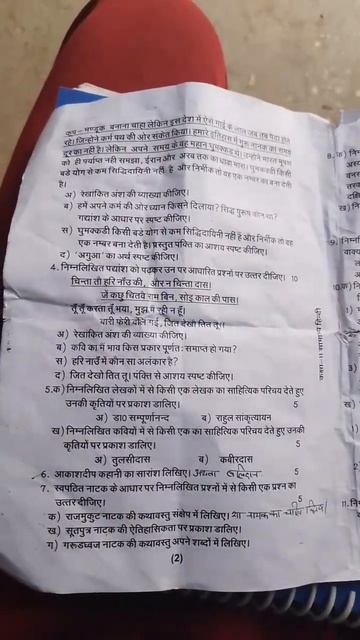 कूप – मण्डूक बनाना चाहा लेकिन इस देश में ऐसे माई के लाल जब तब पैदा होते
रहे। जिन्होने कर्म पथ की ओर संकेत किया। हमारे इतिहास में गुरू नानक का समय
दूर का नही है। लेकिन अपने समय के वह महान घुमक्कड थे। उन्होने भारत भ्रमण
को ही पर्याप्त नही समझा, ईरान और अरब तक का धावा मारा। घुमक्कडी किसी
बडे योग से कम सिद्धिदायिनी नही है और निर्भीक तो वह एक नम्बर का बना देती
है।
अ) रेखांकित अंश की व्याख्या कीजिए।
ब) हमे अपने कर्म की ओर ध्यान किसने दिलाया? सिद्ध पुरुष कौन था?
गद्यांश के आधार पर स्पष्ट कीजिए।
स) घुमक्कडी किसी बडे योग से कम सिद्धिदायिनी नही है और निर्भीक तो वह
एक नम्बर बना देती है। प्रस्तुत पंक्ति का आशय स्पष्ट कीजिए।
द) 'अगुआ' का अर्थ स्पष्ट कीजिए।
4. निम्नलिखित पद्यांश को पढ़कर उन पर आधारित प्रश्नों पर उत्तर दीजिए। 10
चिन्ता तो हरि नाँउ की, और न चिन्ता दास।
जे कछु चितवै राम बिन, सोइ काल की पास।
तूँ तूँ करता तूँ भया, मुझ में रही न हूँ।
वारी फेरी बलि गई, जित देखौ तित तू।।
अ) रेखांकित अंश की व्याख्या कीजिए।
ब) कवि का मैं भाव किस प्रकार पूर्णतः समाप्त हो गया?
स) हरि नाउँ में कौन सा अलंकार है?
द) जित देखो तित तू। पंक्ति से आशय स्पष्ट कीजिए।
5.क) निम्नलिखित लेखकों में से किसी एक लेखक का साहित्यिक परिचय देते हुए
उनकी कृतियों पर प्रकाश डालिए। 5
अ) डा0 सम्पूर्णानन्द ब) राहुल सांकृत्यायन
ख) निम्नलिखित कवियों में से किसी एक का साहित्यिक परिचय देते हुए उनकी
कृतियों पर प्रकाश डालिए। 5
अ) तुलसीदास ब) कबीरदास
6. आकाशदीप कहानी का सारांश लिखिए। अथवा बलिदान
7. स्वपठित नाटक के आधार पर निम्नलिखित प्रश्नों में से किसी एक प्रश्न का
उत्तर दीजिए। 5
क) राजमुकुट नाटक की कथावस्तु संक्षेप में लिखिए। या नायक का चरित्र
ख) सूतपुत्र नाटक की ऐतिहासिकता पर प्रकाश डालिए।
ग) गरूडध्वज नाटक की कथावस्तु अपने शब्दों में लिखिए।
(2)
कक्षा–11 सामान्य हिन्दी